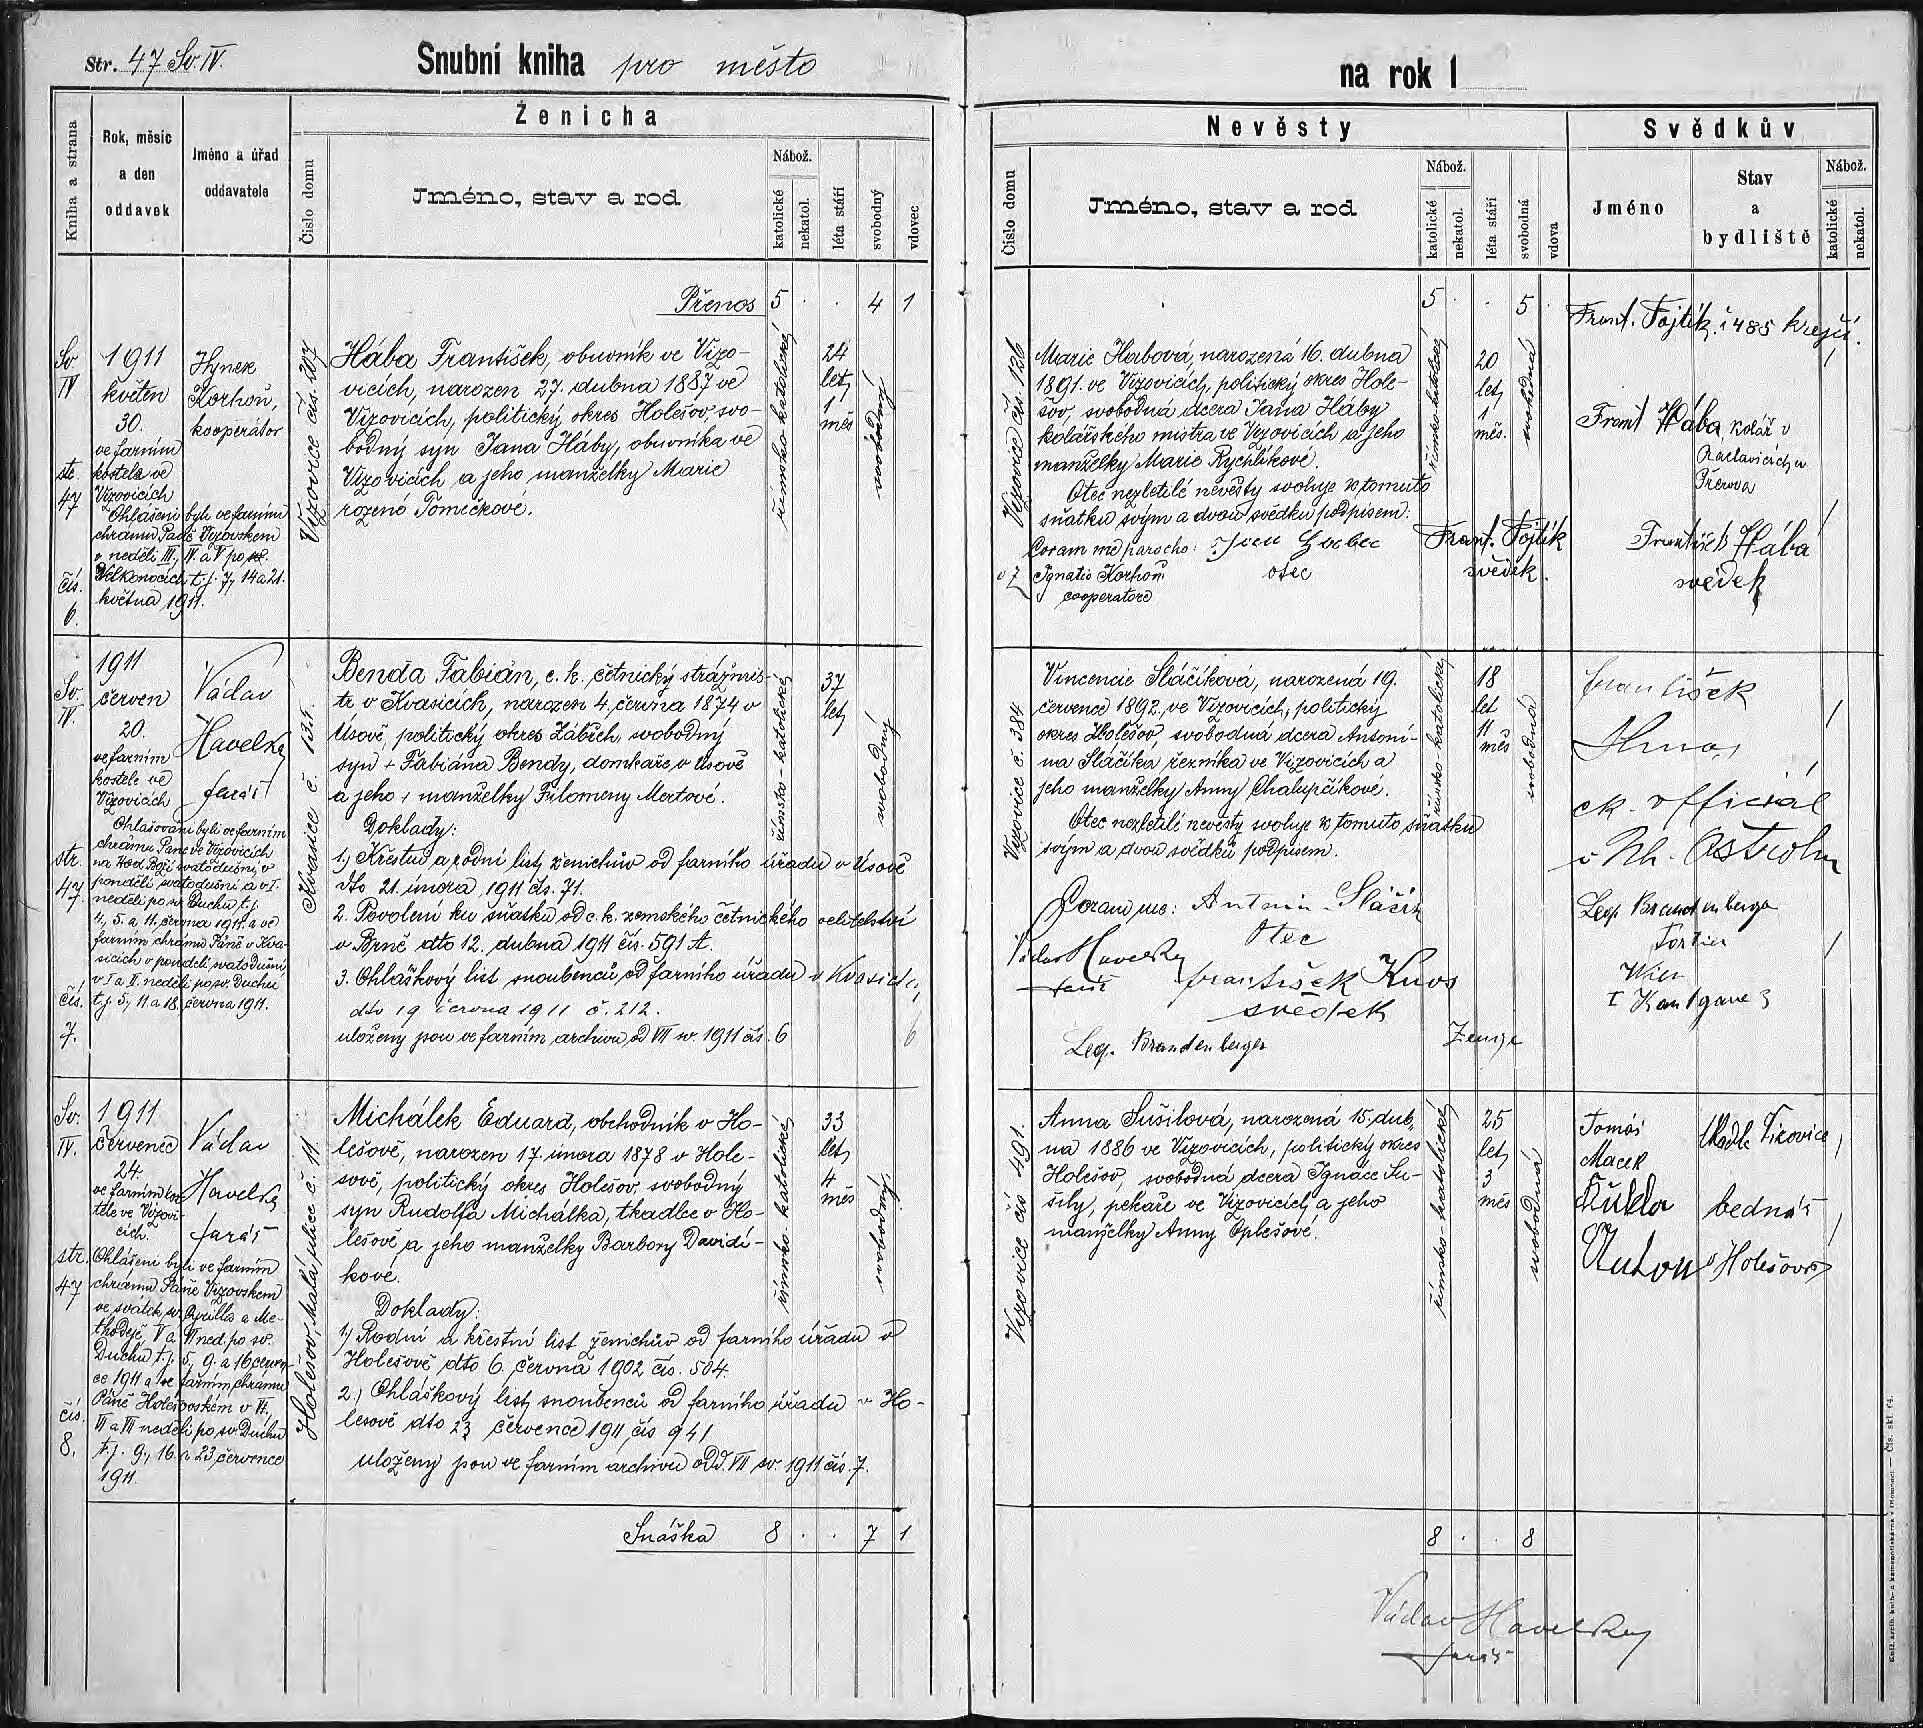 Str. 47 Sv. IV.
Snubní kniha pro město
na rok 1
Kniha a strana
Rok, měsíc
a den
oddavek
Jméno a úřad
oddavatele
Ženicha
Číslo domu
Jméno, stav a rod
Nábož.
katolické
nekatol.
léta stáří
svobodný
vdovec
Nevěsty
Číslo domu
Jméno, stav a rod
Nábož.
katolické
nekatol.
léta stáří
svobodná
vdova
Svědkův
Jméno
Stav
a
bydliště
Nábož.
katolické
nekatol.
Přenos 5 . . 4 1
5 . . 5 .
Sv
IV
str
47
čís.
6.
1911
květen
30.
ve farním
kostele ve
Vizovicích
Ohlášeni byli ve farním
chrámu Páně Vizovském
v neděli III., IV. a V po
Velkonocích t. j. 7, 14 a 21.
května 1911.
Hynek
Korhoň,
kooperátor
Vizovice čís. 207
Hába František, obuvník ve Vizo-
vicích, narozen 27. dubna 1887 ve
Vizovicích, politický okres Holešov, svo-
bodný syn Jana Háby, obuvníka ve
Vizovicích a jeho manželky Marie
rozené Tomečkové.
římsko katolické
24
let
1
měs
svobodný
Vizovice čís. 126
Marie Habová, narozená 16. dubna
1891. ve Vizovicích, politický okres Hole-
šov, svobodná dcera Jana Háby
kolářského mistra ve Vizovicích a jeho
manželky Marie Rychlíkové.
Otec nezletilé nevěsty svoluje k tomuto
sňatku svým a dvou svědků podpisem:
Coram me parocho:
Ignatio Korhoň
cooperatore
otec
Frant. Fojtík
svědek.
římsko katolické
20
let
1
měs.
svobodná
Frant. Fojtík. č 485 krejčí.
Frant Hába kolář v
Raclavicích u
Přerova
František Hába
svědek
Sv.
IV.
str.
47
čís.
7.
1911
červen
20.
ve farním
kostele ve
Vizovicích
Ohlašováni byli ve farním
chrámu Páně ve Vizovicích
na Hod Boží svatodušní, v
pondělí svatodušní a v I.
neděli po sv. Duchu t. j.
4., 5. a 11. června 1911. a ve
farním chrámu Páně v Kva-
sicích v pondělí svatodušní
v I a II. neděli po sv. Duchu
t. j. 5, 11 a 18. června 1911.
Václav
Havelka
farář
Kvasice č. 135.
Benda Fabián, c. k. četnický strážmis-
tr v Kvasicích, narozen 4. června 1874 v
Úsově, politický okres Zábřeh, svobodný
syn + Fabiána Bendy, domkaře v Úsově
a jeho + manželky Filomeny Mertové.
Doklady:
1.) Křestní a rodní list ženichův od farního úřadu v Úsově
dto 21. února 1911 čís. 71.
2. Povolení ku sňatku od c. k. zemského četnického velitelství
v Brně dto 12. dubna 1911 čís. 591 A.
3. Ohláškový list snoubenců od farního úřadu v Kvasicích,
dto 19 června 1911 č. 212.
uloženy jsou ve farním archivu od VII sv. 1911 čís. 6
římsko-katolické
37
let
svobodný
Vizovice č. 384
Vincencie Sláčíková, narozená 19.
července 1892. ve Vizovicích, politický
okres Holešov, svobodná dcera Antoní-
na Sláčíka, řezníka ve Vizovicích a
jeho manželky Anny Chalupčíkové.
Otec nezletilé nevěsty svoluje k tomuto sňatku
svým a dvou svědků podpisem.
Coram me: Antonín Sláčík
Otec
Václav Havelka
farář
svědek
Leop. Brandenberger
Zeuge
římsko-katolické
18
let
11
měs
svobodná
František
ck. officiál
Leop. Brandenberger
Wien
Sv.
IV.
str.
47
čís.
8.
1911
červenec
24.
ve farním kos-
tele ve Vizovi-
cích.
Ohlášeni byli ve farním
chrámu Páně Vizovském
ve svátek sv. Cyrilla a Me-
thoděje, V a VI ned. po sv.
Duchu t. j. 5, 9. a 16 červen-
ce 1911 a ve farním chrámu
Páně Holešovském v VI,
VII neděli po sv. Duchu
t. j. 9., 16. a 23. července
1911.
Václav
Havelka
farář
Holešov, Malá ulice č. 11.
Michálek Eduard, obchodník v Ho-
lešově, narozen 17. února 1878 v Hole-
šově, politický okres Holešov, svobodný
syn Rudolfa Michálka, tkadlce v Ho-
lešově a jeho manželky Barbory Davidí-
kové.
Doklady:
1.) Rodní a křestní list ženichův od farního úřadu v
Holešově dto 6. června 1902 čís. 504.
2.) Ohláškový list snoubenců od farního úřadu v Ho-
lešově dto 23 července 1911, čís 941
uloženy jsou ve farním archivu odd. VII sv. 1911 čís. 7.
římsko-katolické
33
let
4
měs
svobodný
Vizovice čís 491.
Anna Sušilová, narozená 15. dub-
na 1886 ve Vizovicích, politický okres
Holešov, svobodná dcera Ignáce Su-
šily, pekaře ve Vizovicích a jeho
manželky Anny Oplešové.
římsko-katolické
25
let
3
měs
svobodná
Tomáš
Macek
Vizovice
bednář
Holešov
Snáška 8 . . 7 1
8 . . 8
Václav Havelka
farář